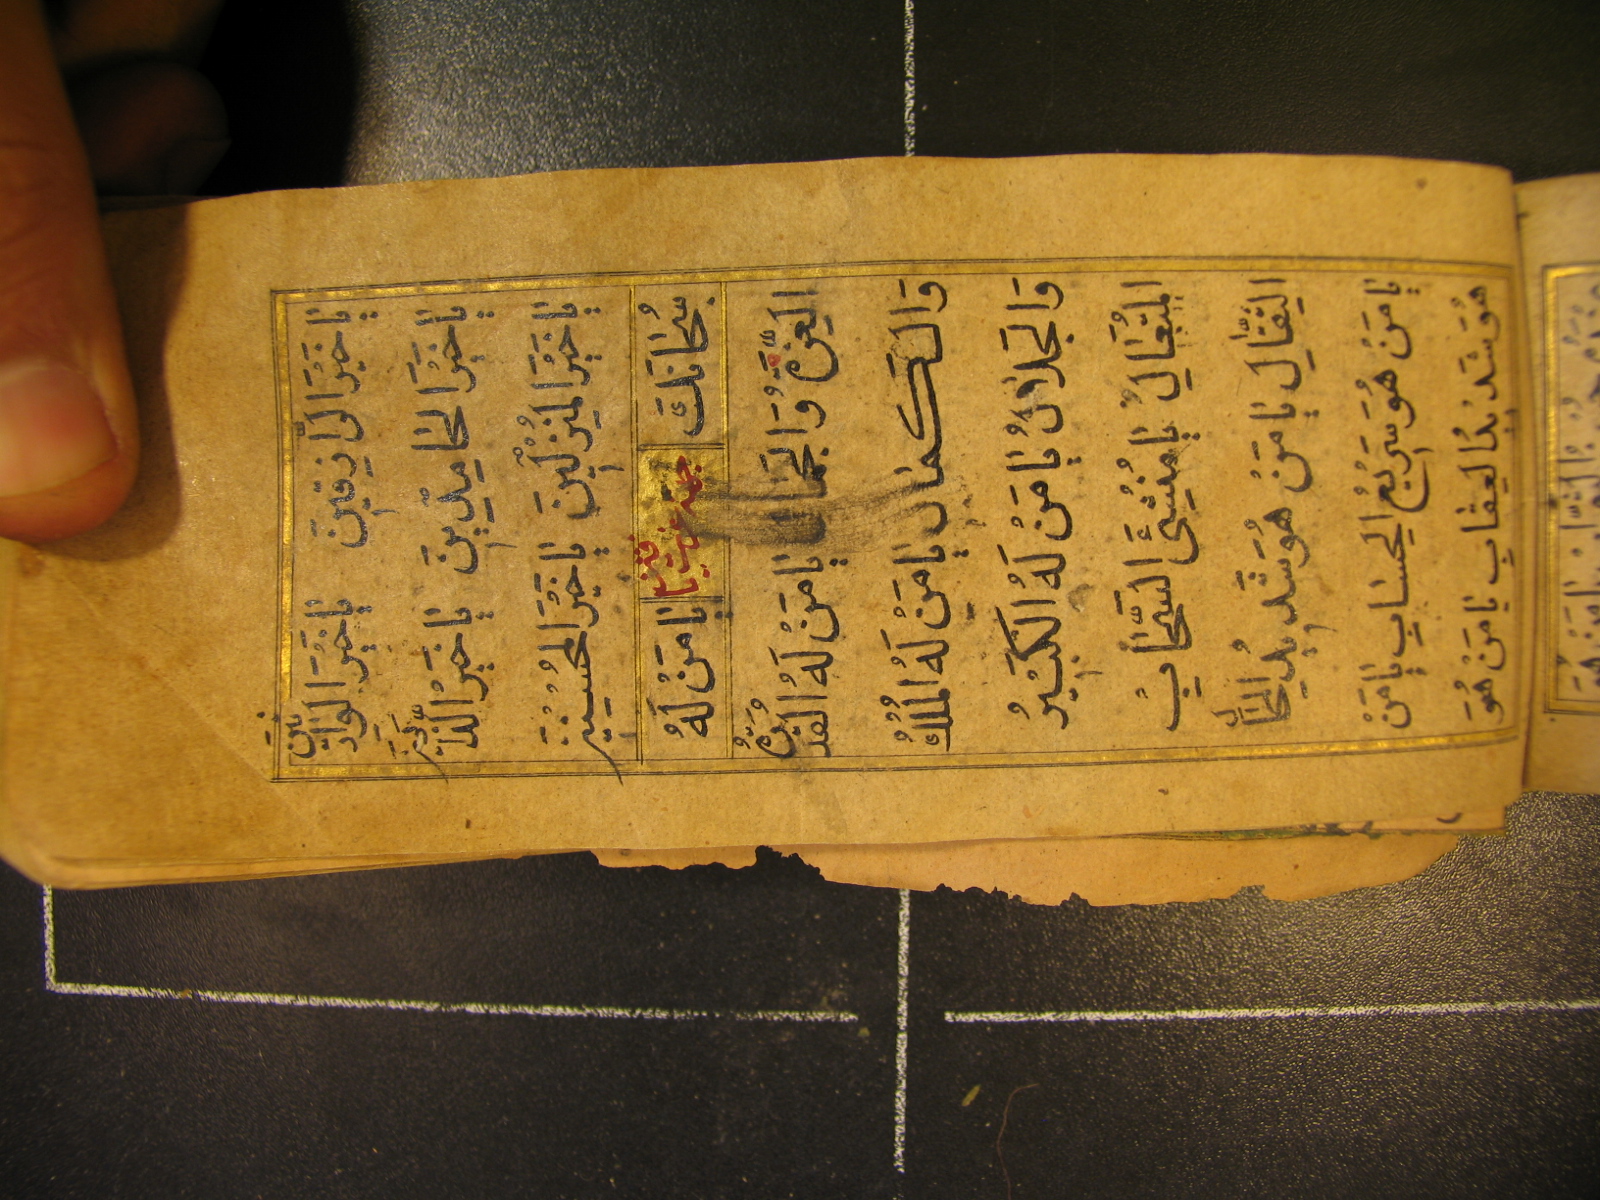 يَا خَيْرَ الرَّازِقِينَ يَا خَيْرَ الْوَارِثِينَ
يَا خَيْرَ الْحَامِدِينَ يَا خَيْرَ الذَّاكِرِينَ
يَا خَيْرَ الْمُنْزِلِينَ يَا خَيْرَ الْمُحْسِنِينَ
سُبْحَانَكَ يَا مَنْ لَهُ
الْعِزَّةُ وَالْجَمَالُ يَا مَنْ لَهُ الْقُدْرَةُ
وَالْكَمَالُ يَا مَنْ لَهُ الْمُلْكُ
وَالْجَلَالُ يَا مَنْ لَهُ الْكَبِيرُ
الْمُتَعَالِ يَا مُنْشِئَ السَّحَابِ
الثِّقَالِ يَا مَنْ هُوَ شَدِيدُ الْمِحَالِ
يَا مَنْ هُوَ سَرِيعُ الْحِسَابِ يَا مَنْ
هُوَ شَدِيدُ الْعِقَابِ يَا مَنْ هُوَ